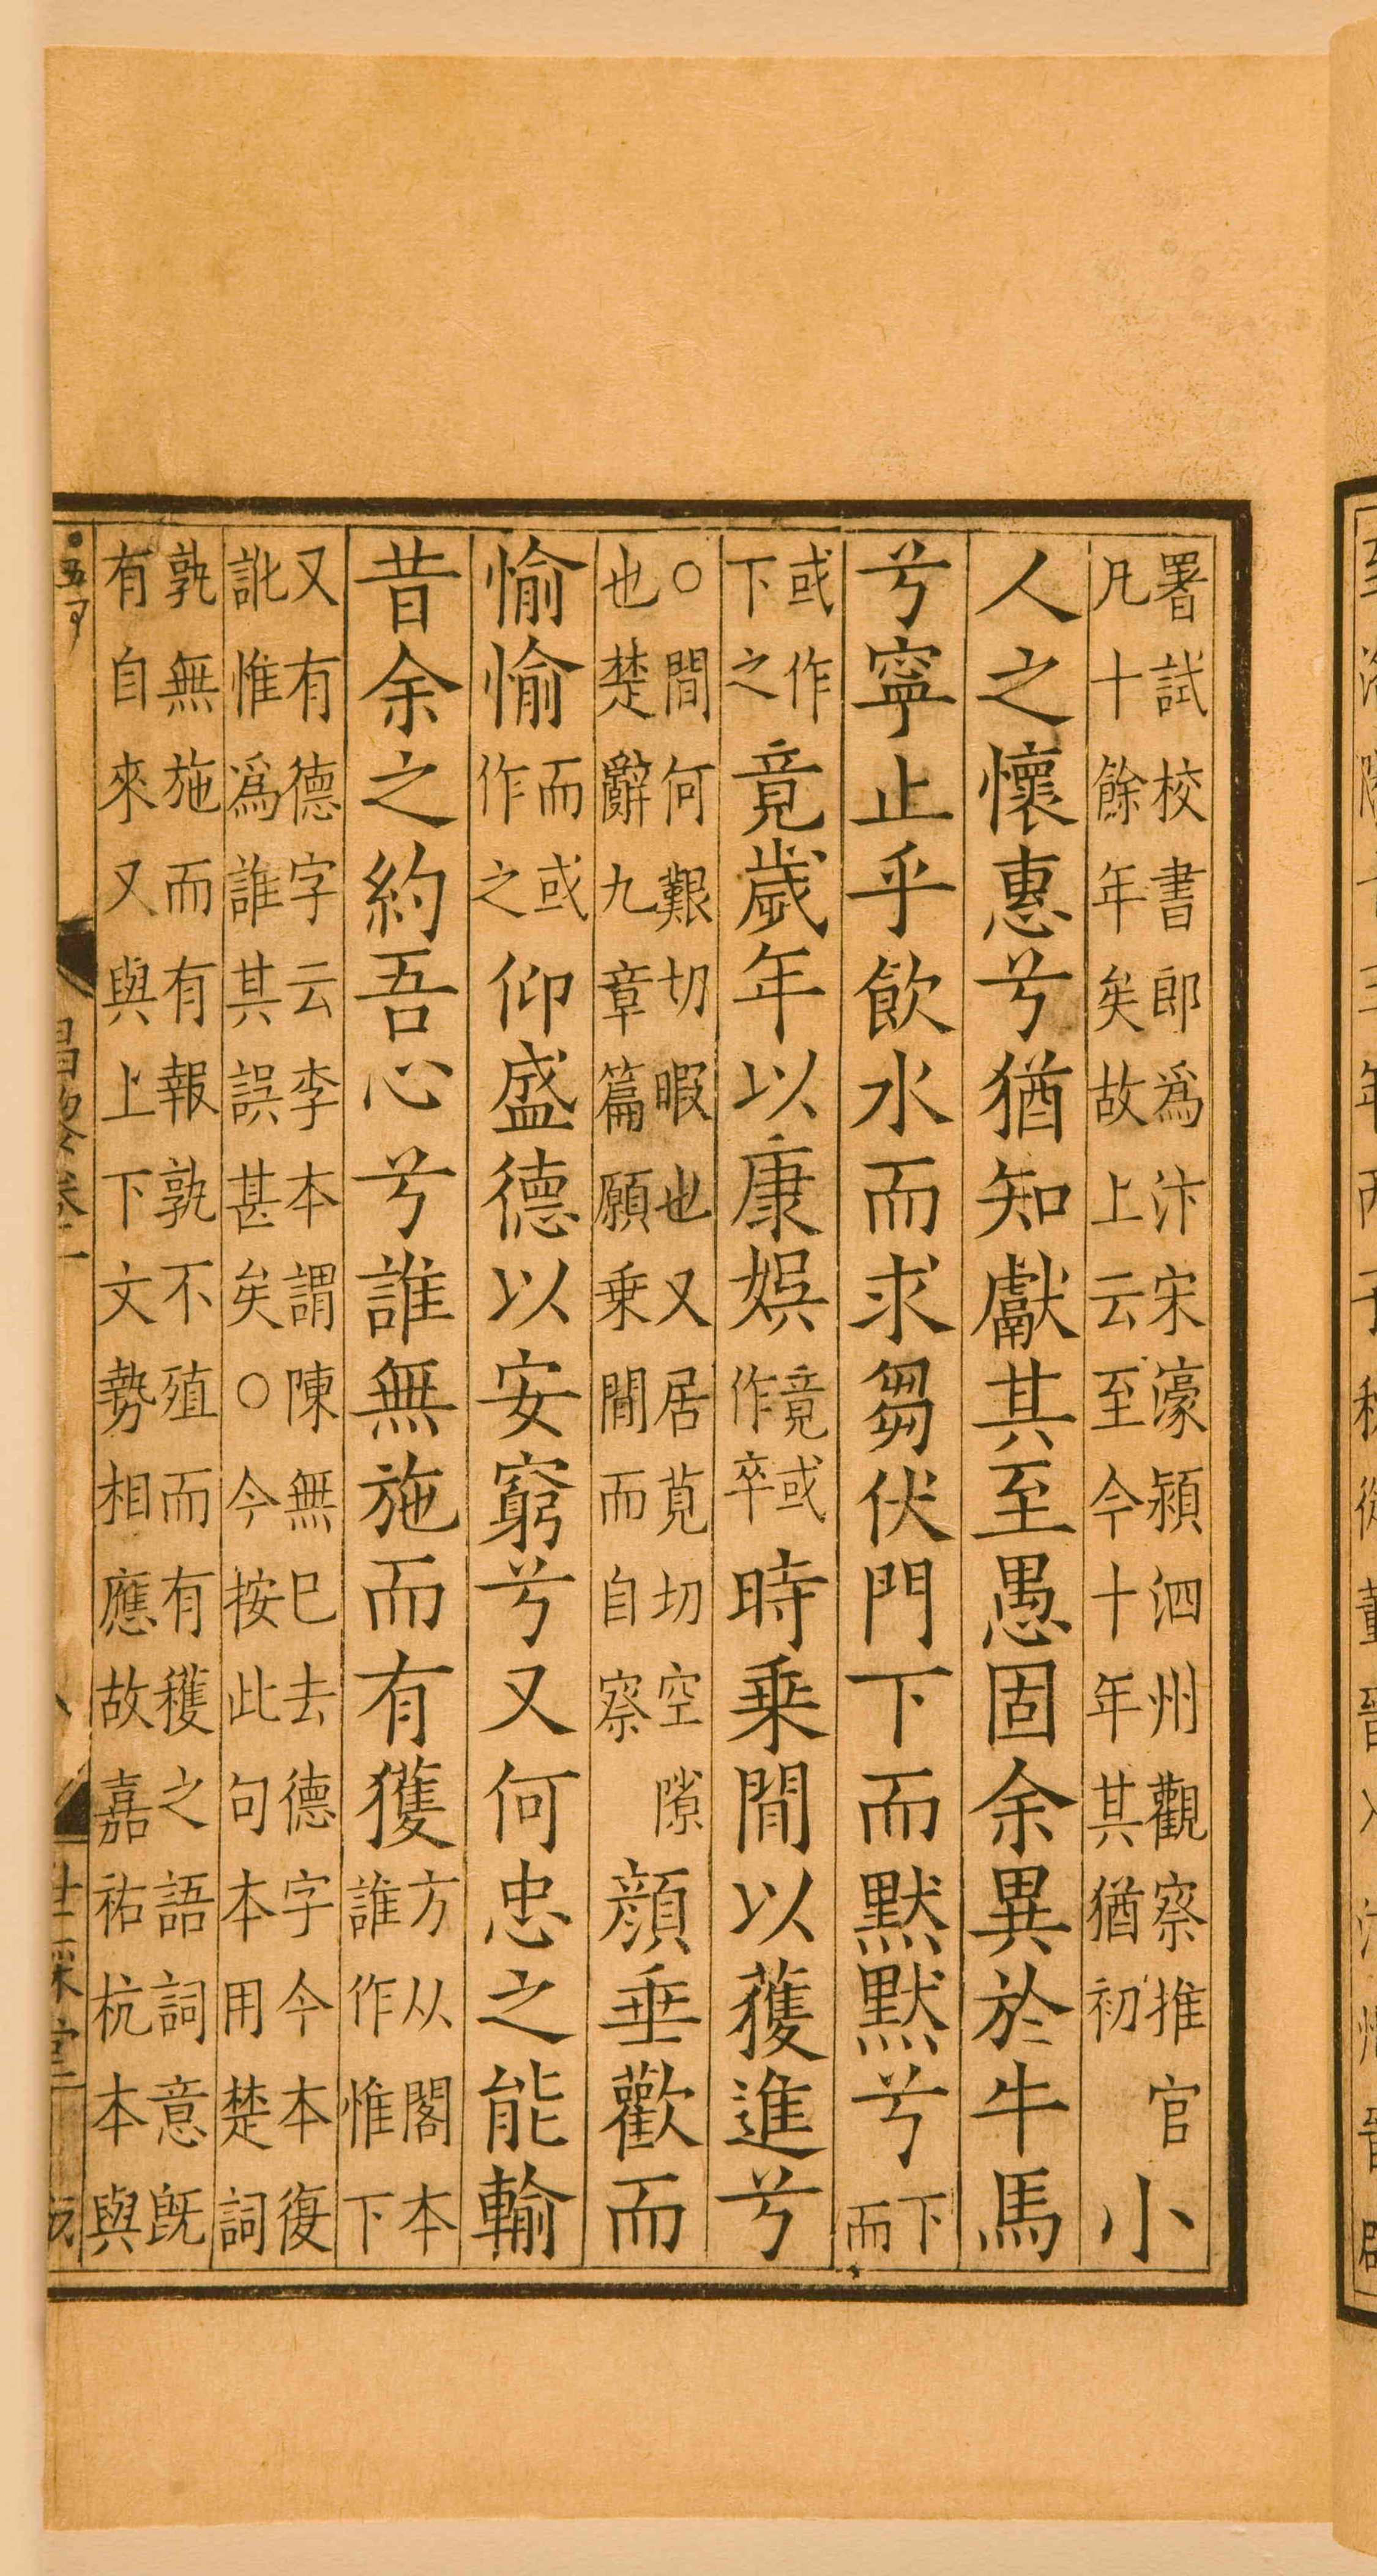 署試校書郎爲汴宋濠潁泗州觀察推官
凡十餘年矣故上云至今十年其猶初
小
人之懷惠兮猶知獻其至愚固余異於牛馬
兮寧止乎飲水而求芻伏門下而默默兮
下
而
或作
下之
竟歲年以康娛
竟或
作卒
時乗閒以獲進兮
○閒何艱切暇也又居莧切空隙
也楚辭九章篇願乗閒而自察
顔垂歡而
愉愉
而或
作之
仰盛德以安窮兮又何忠之能輸
昔余之約吾心兮誰無施而有獲
方从閣本
誰作惟下
又有德字云李本謂陳無巳去德字今本復
訛惟爲誰其誤甚矣○今按此句本用楚詞
孰無施而有報孰不殖而有穫之語詞意既
有自來又與上下文勢相應故嘉祐杭本與